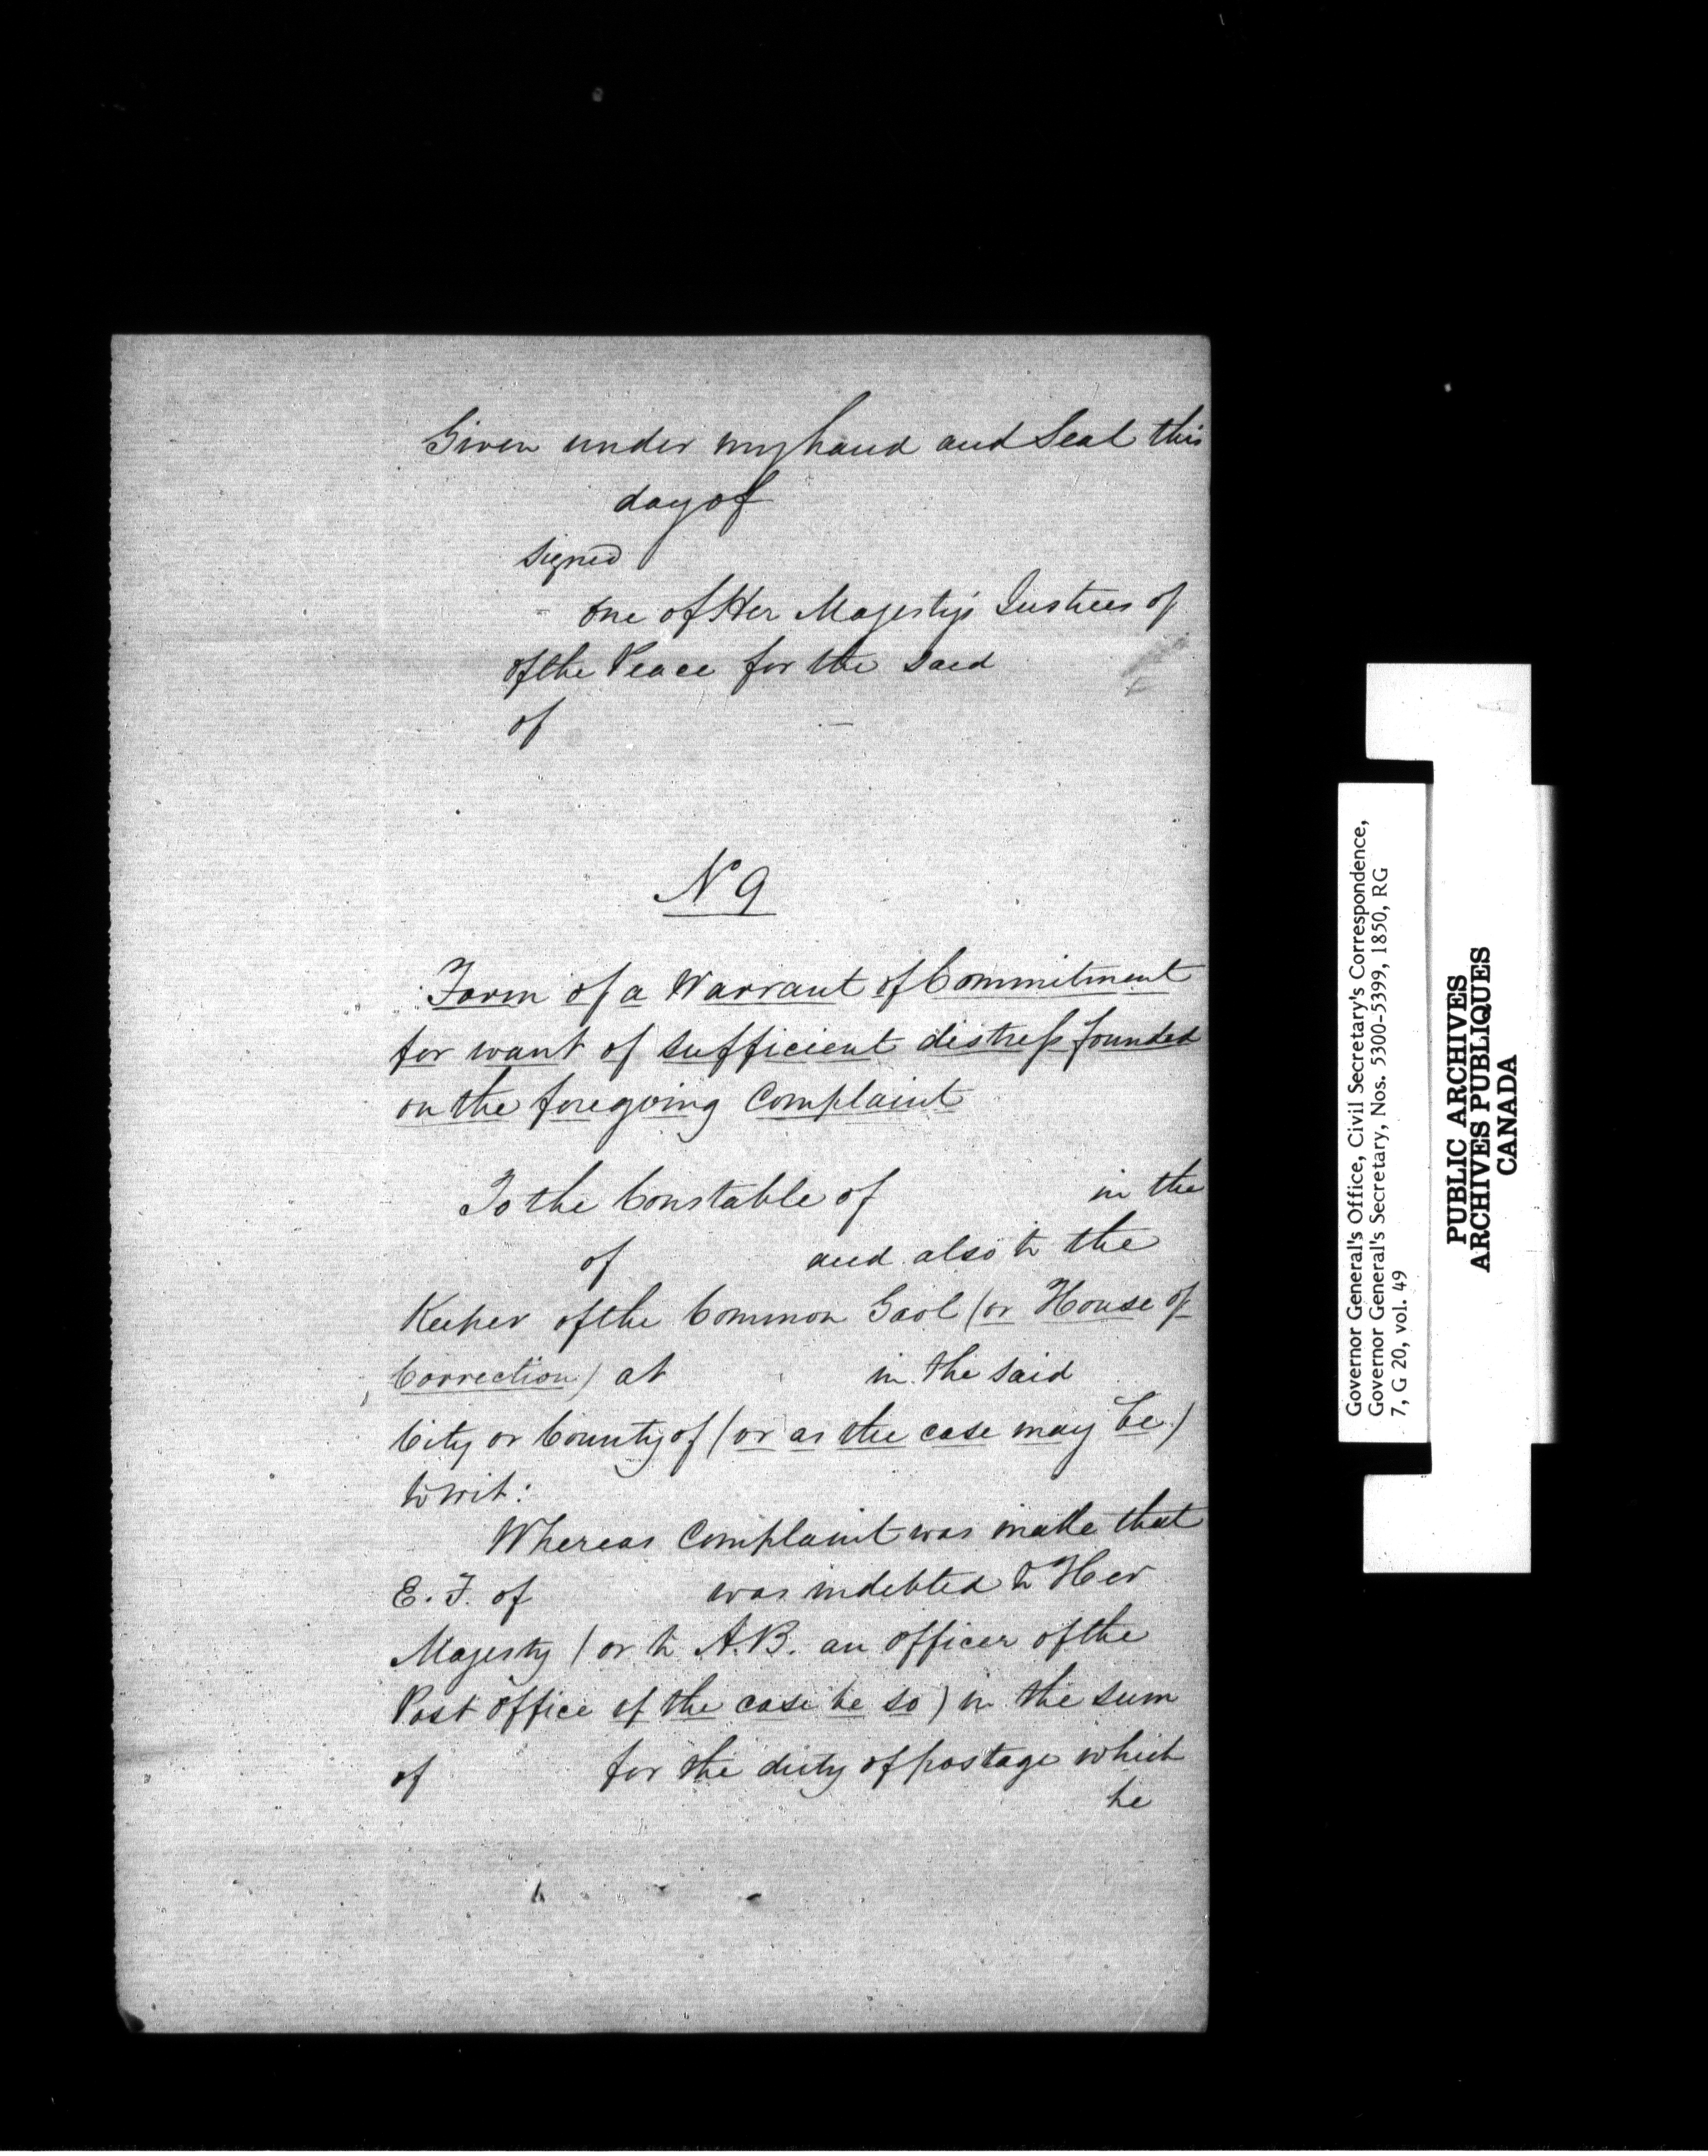 Given under my hand and Seal this
day of
signed
one of Her Majesty's Justices of
of the Peace for the said
of
No 9
Form of a Warrant of Commitment
for want of sufficient distress founded
on the foregoing Complaint
To the Constable of in the
of and also to the
Keeper of the Common Gaol (or House of
Correction) at in the said
City or County of (or as the case may be)
to wit:
Whereas Complaint was made that
E. F. of was indebted to Her
Majesty (or to A.B. an officer of the
Post Office if the case be so) in the sum
of for the duty of postage which
he
Governor General's Office, Civil Secretary's Correspondence,
Governor General's Secretary, Nos. 5300-5399, 1850, RG
7, G 20, vol. 49
PUBLIC ARCHIVES
ARCHIVES PUBLIQUES
CANADA